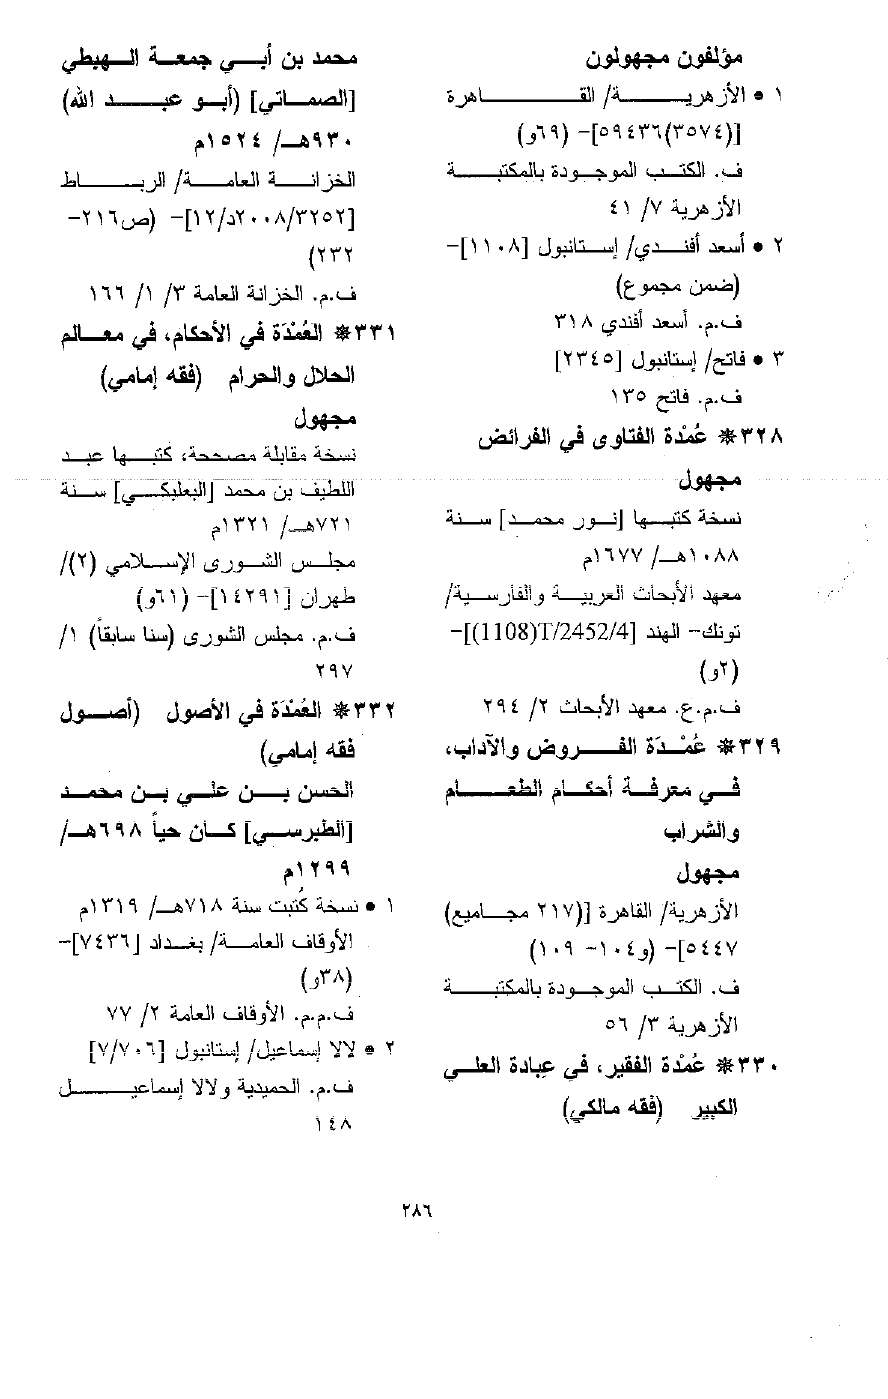 مؤلفون مجهولون
١ • الأزهرية/ القاهرة
[(٣٥٧٤)٥٩٤٣٦]- (٦٩و)
ف. الكتب الموجودة بالمكتبة
الأزهرية ٧/ ٤١
٢ • أسعد أفندي/ إستانبول [١١٠٨]-
(ضمن مجموع)
ف.م. أسعد أفندي ٣١٨
٣ • فاتح/ إستانبول [٢٣٤٥]
ف.م. فاتح ١٣٥
٣٢٨* عُمْدة الفتاوى في الفرائض
مجهول
نسخة كتبها [نور محمد] سنة
١٠٨٨هـ/ ١٦٧٧م
معهد الأبحاث العربية والفارسية/
تونك- الهند [T/2452/4(1108)]-
(٢و)
ف.م.ع. معهد الأبحاث ٢/ ٢٩٤
٣٢٩* عُمْدَة الفروض والآداب،
في معرفة أحكام الطعام
والشراب
مجهول
الأزهرية/ القاهرة [(٢١٧ مجاميع)
٥٤٤٧]- (و١٠٤- ١٠٩)
ف. الكتب الموجودة بالمكتبة
الأزهرية ٣/ ٥٦
٣٣٠* عُمْدة الفقير، في عبادة العلي
الكبير (فقه مالكي)
محمد بن أبي جمعة الهبطي
[الصماتي] (أبو عبد الله)
٩٣٠هـ/ ١٥٢٤م
الخزانة العامة/ الرباط
[٣٢٥٢/٢٠٠٨د/١٢]- (ص٢١٦-
٢٣٢)
ف.م. الخزانة العامة ٣/ ١/ ١٦٦
٣٣١* العُمْدَة في الأحكام، في معالم
الحلال والحرام (فقه إمامي)
مجهول
نسخة مقابلة مصححة، كتبها عبد
اللطيف بن محمد [البعلبكي] سنة
٧٢١هـ/ ١٣٢١م
مجلس الشورى الإسلامي (٢)/
طهران [١٤٢٩١]- (٦١و)
ف.م. مجلس الشورى (سنا سابقاً) ١/
٢٩٧
٣٣٢* العُمْدَة في الأصول (أصول
فقه إمامي)
الحسن بن علي بن محمد
[الطبرسي] كان حياً ٦٩٨هـ/
١٢٩٩م
١ • نسخة كُتبت سنة ٧١٨هـ/ ١٣١٩م
الأوقاف العامة/ بغداد [٧٤٣٦]-
(٣٨و)
ف.م.م. الأوقاف العامة ٢/ ٧٧
٢ • لالا إسماعيل/ إستانبول [٧/٧٠٦]
ف.م. الحميدية ولالا إسماعيل
١٤٨
٢٨٦